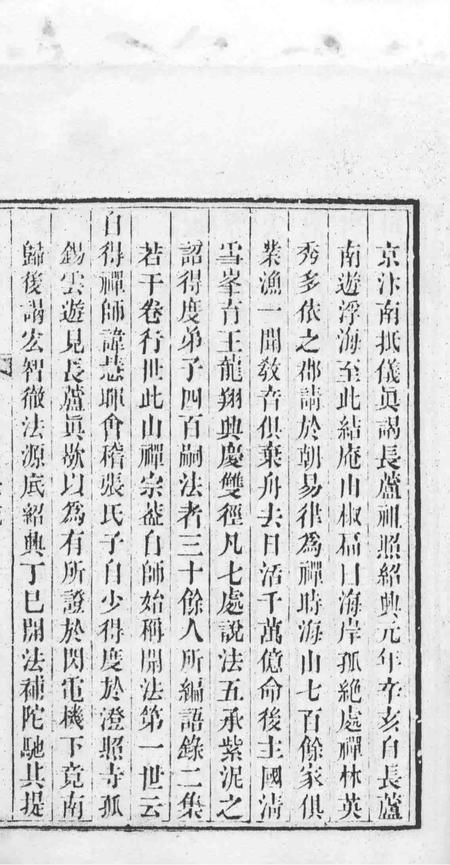 京汴南抵儀眞謁長蘆祖照紹興元年辛亥自長蘆
南遊浮海至此結庵山椒扁曰海岸孤絶處禪林英
秀多依之郡請於朝易律爲禪時海山七百餘家俱
業漁一聞敎音俱棄舟去日活千萬億命後主國淸
雪峯育王龍翔興慶雙徑凡七處說法五承紫泥之
詔得度弟子四百嗣法者三十餘人所編語錄二集
若干卷行世此山禪宗葢自師始稱開法第一世云
自得禪師諱慧暉會稽張氏子自少得度於澄照寺孤
錫雲遊見長蘆眞歇以為有所證於閃電機下竟南
歸後謁宏智徹法源底紹興丁巳開法補陀馳其提